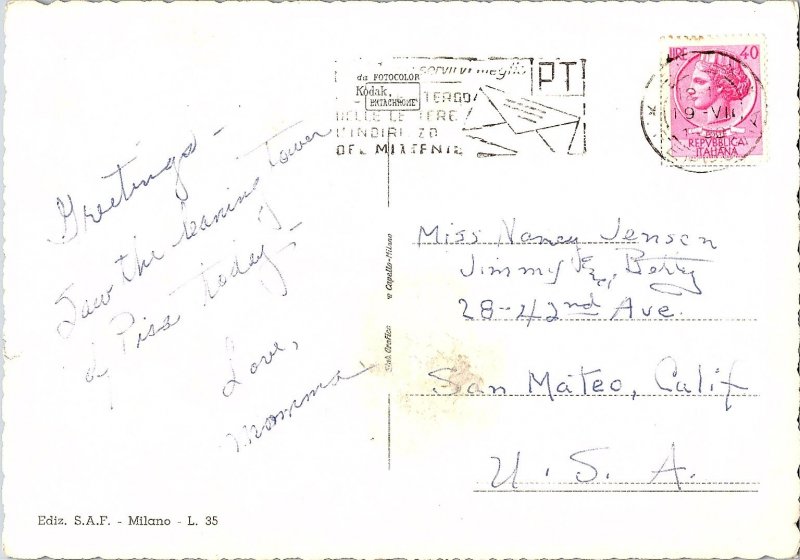 Greetings -
Saw the leaning tower
of Pisa today -
Love,
Momma
da FOTOCOLOR
Kodak
EKTACHROME
servirvi meglio
PT
TERGO
DELLE LETTERE
L'INDIRIZZO
DEL MITTENTE
LIRE 40
19-VII
REPVBBLICA
ITALIANA
Miss Nancy Jensen
Jimmy & Betty
28-42nd Ave.
San Mateo, Calif
U. S. A.
Capello-Milano
Ediz. S.A.F. - Milano - L. 35